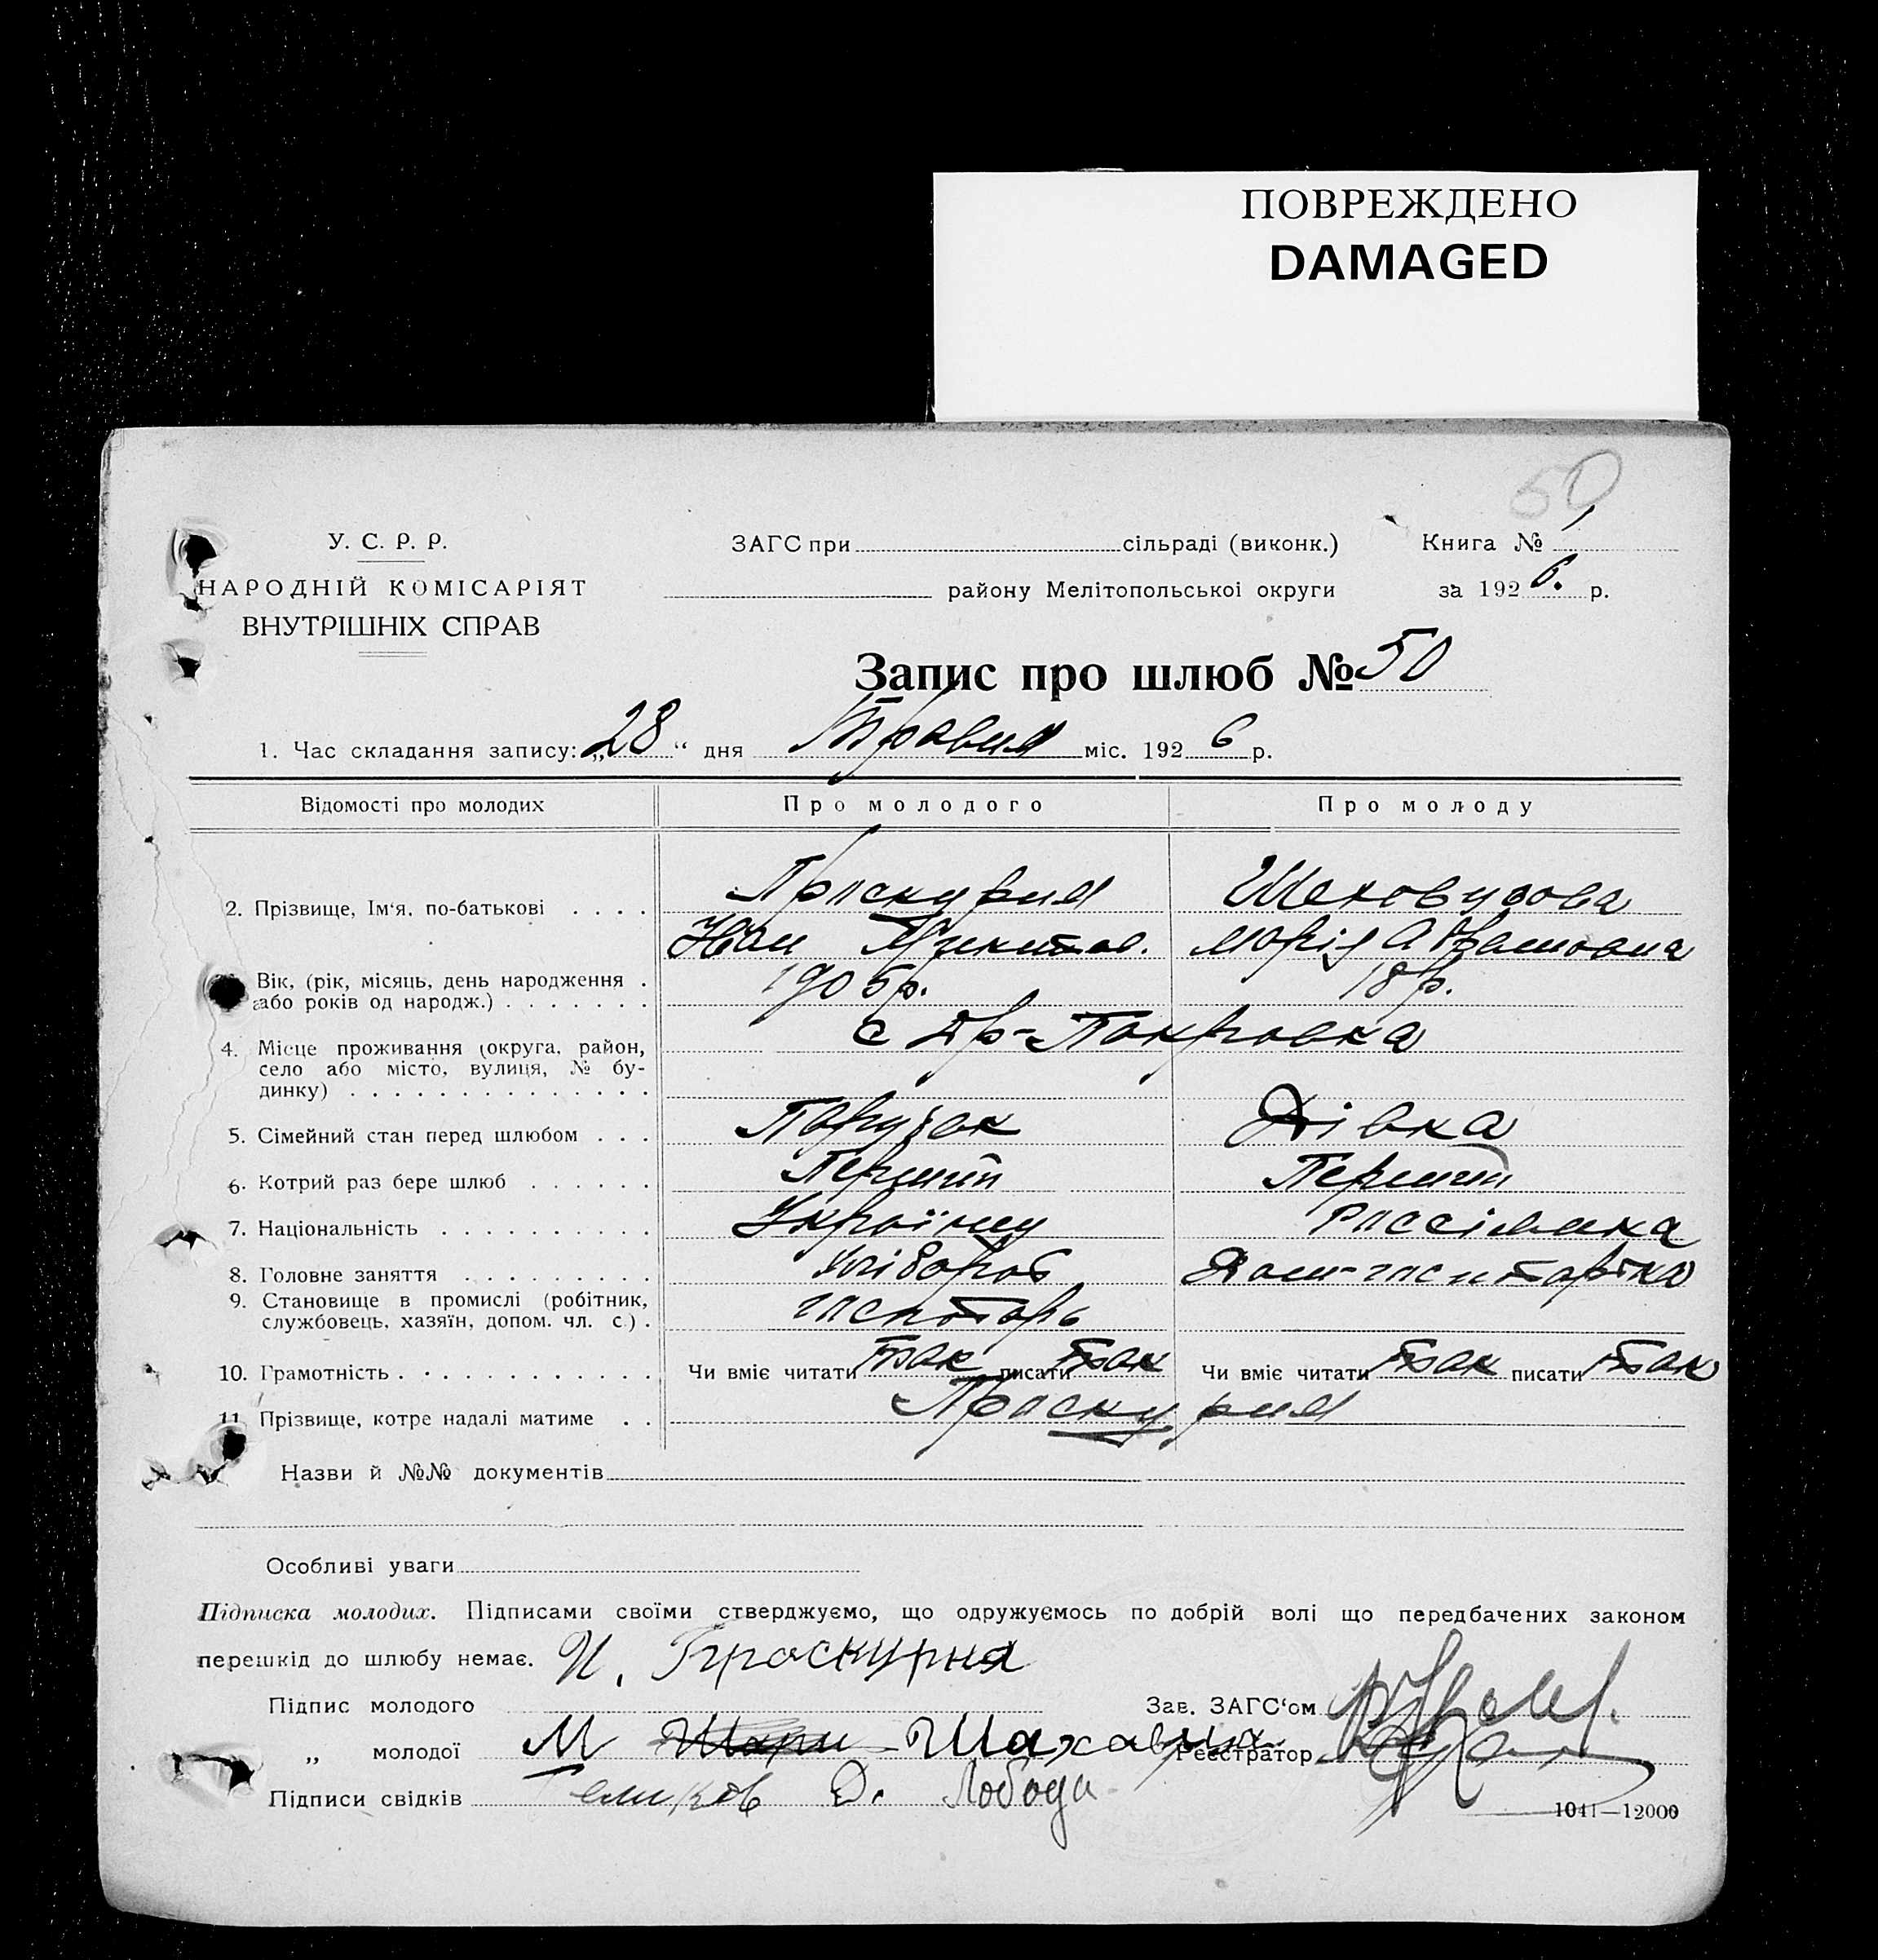 ПОВРЕЖДЕНО
DAMAGED
50
У. С. Р. Р.
НАРОДНІЙ КОМІСАРІЯТ
ВНУТРІШНІХ СПРАВ
ЗАГС при сільраді (виконк.)
району Мелітопольської округи
Книга № 1
за 1926. р.
Запис про шлюб № 50
1. Час складання запису: „28“ дня Травня міс. 1926 р.
Відомості про молодих Про молодого Про молоду
2. Прізвище, Ім'я, по-батькові . . . . Проскурня
Іван Микитов. Марія
Вік, (рік, місяць, день народження .
або років од народж.) . . . . . . . 1905р. 18р.
4. Місце проживання (округа, район,
село або місто, вулиця, № бу-
динку) . . . . . . . . . . . . . . с Др-Покровка
5. Сімейний стан перед шлюбом . . . Парубок Дівка
6. Котрий раз бере шлюб . . . . . . Перший Перший
7. Національність . . . . . . . . . . Україн
8. Головне заняття . . . . . . . . . Хлібороб Дом-господарка
9. Становище в промислі (робітник,
службовець, хазяїн, допом. чл. с.) . господарь
10. Грамотність . . . . . . . . . . . . Чи вміє читати так писати так Чи вміє читати так писати так
11 Прізвище, котре надалі матиме . . Проскурня
Назви й №№ документів
Особливі уваги
Підписка молодих. Підписами своїми стверджуємо, що одружуємось по добрій волі що передбачених законом
перешкід до шлюбу немає. И. Проскурня
Підпис молодого Зав. ЗАГС'ом
„ молодої М Реєстратор
Підписи свідків Д. Лобода
1041—12000